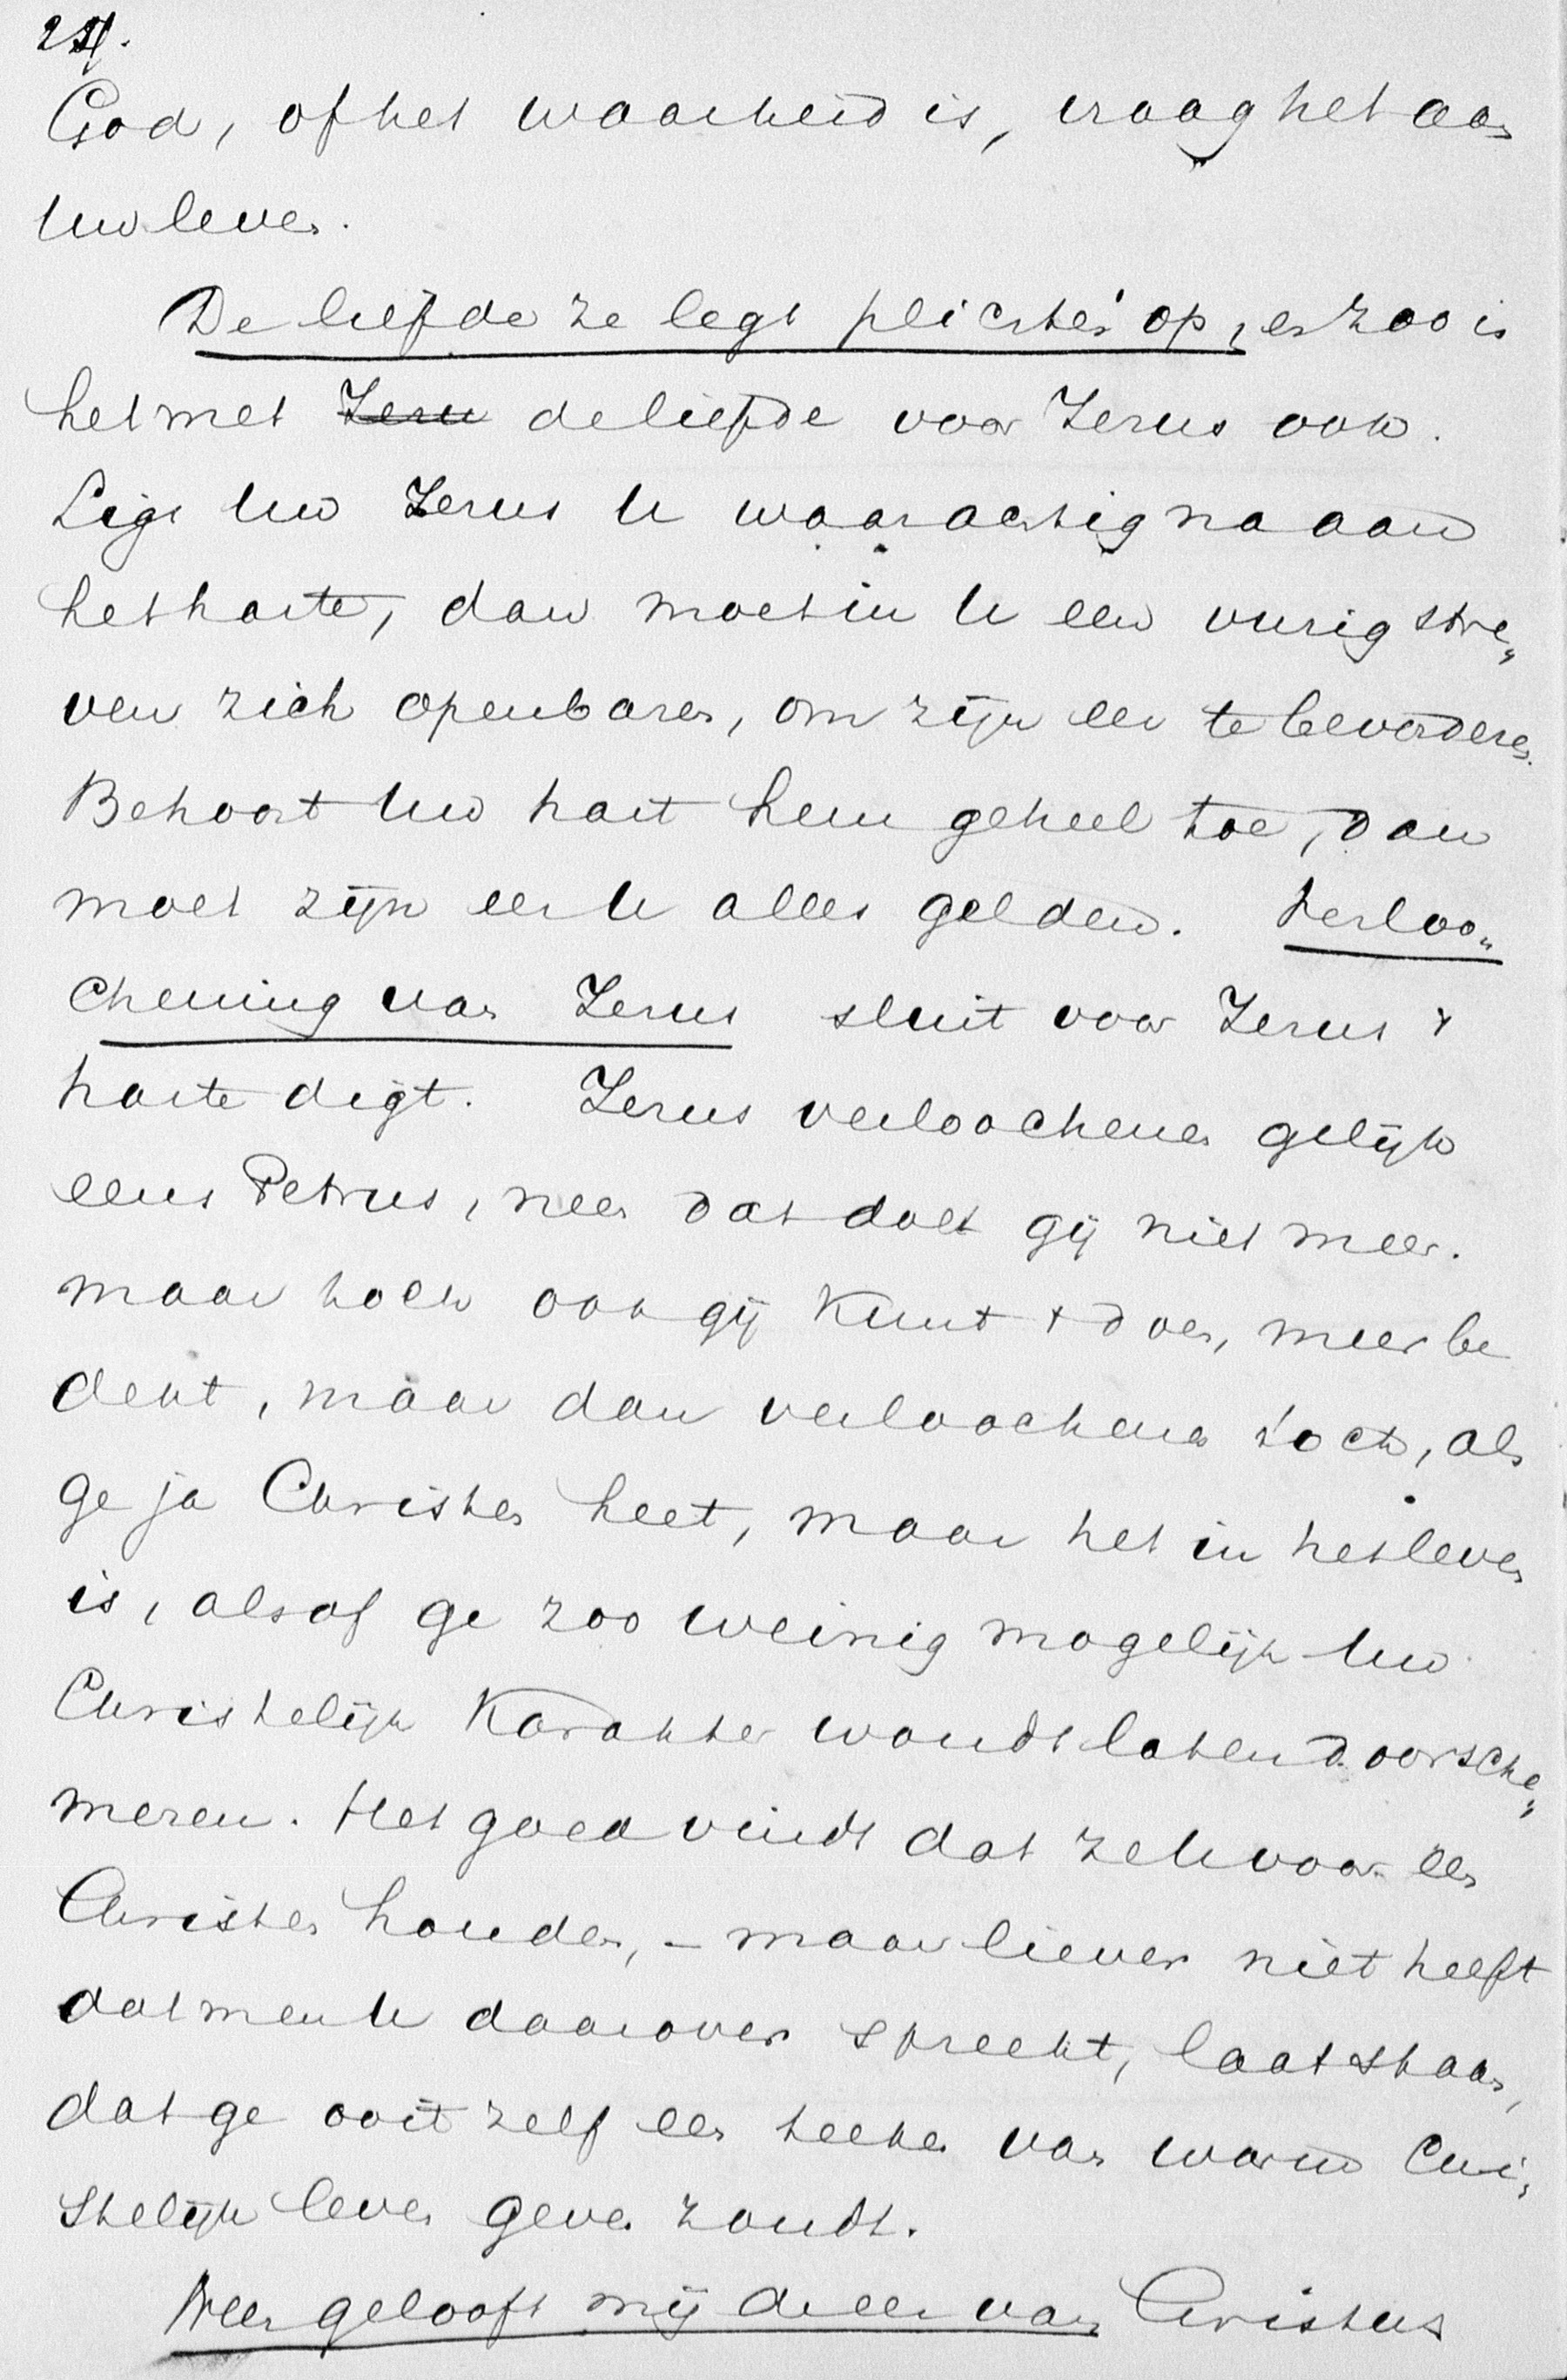 God, of het waarheid is, vraag het aan
Uw leven.
De liefde ze legt plichten op, en zoo is
het met Jesu de liefde voor Jesus ook.
Ligt Uw Jesus U waarachtig na aan
het harte, dan moet in U een vurig stre„
ven zich openbaren, om zijn eer te bevorderen.
Behoort Uw hart hem geheel toe, dan
moet zijn eer U alles gelden. Verloo„
chening van Jesus sluit voor Jesus 't
harte digt. Jesus verloochenen gelijk
eens Petrus, neen dat doet gij niet meer.
maar toch ook gij kunt 't doen, meer be
dekt, maar dan verloochenen toch, als
ge ja Christen heet, maar het in het leven
is, alsof ge zoo weinig mogelijk Uw
Christelijk karakter woudt laten doorsche„
meren. Het goed vindt dat ze U voor een
Christen houden, – maar liever niet heeft
dat men U daarover spreekt, laat staan,
dat ge ooit zelf een teeken van warm Chri„
stelijk leven geven zoudt.
Neen gelooft mij de eer van Christus